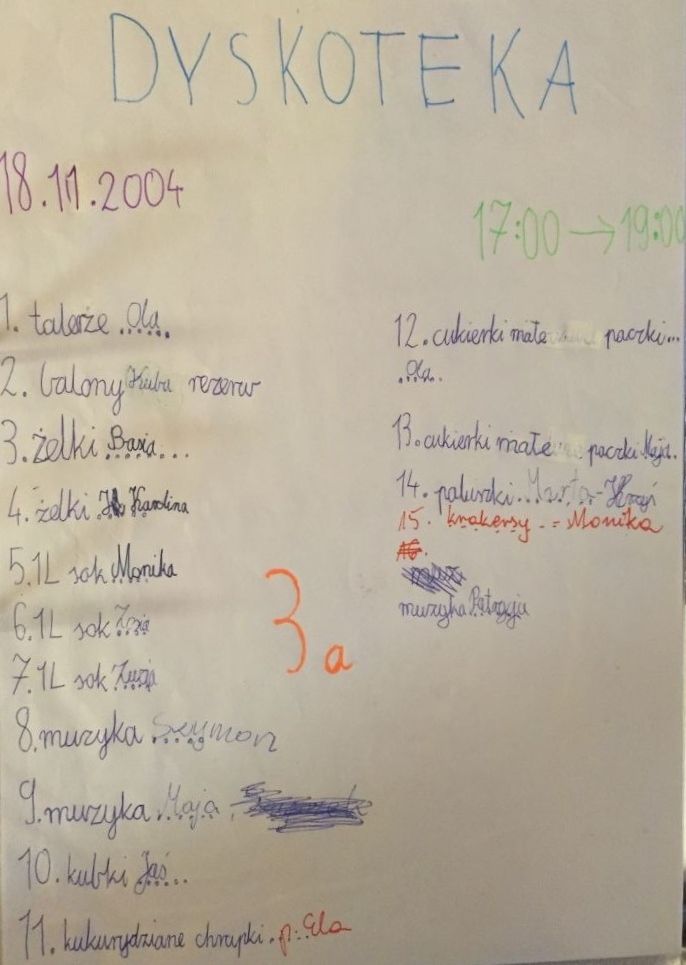 DYSKOTEKA
18.11.2004
17:00 → 19:00
1. talerze Ola
2. balony Kuba rezerw
3. żelki Basia...
4. żelki Karolina
5. 1L sok Monika
6. 1L sok Zosia
7. 1L sok Zuzia
8. muzyka Szymon
9. muzyka Maja
10. kubki Jaś...
11. kukurydziane chrupki. p. Ela
3a
12. cukierki małe paczki...
Ola.
13. cukierki małe paczki Maja.
14. paluszki... Marta - Krzyś
15. krakersy - Monika
muzyka Patrycja